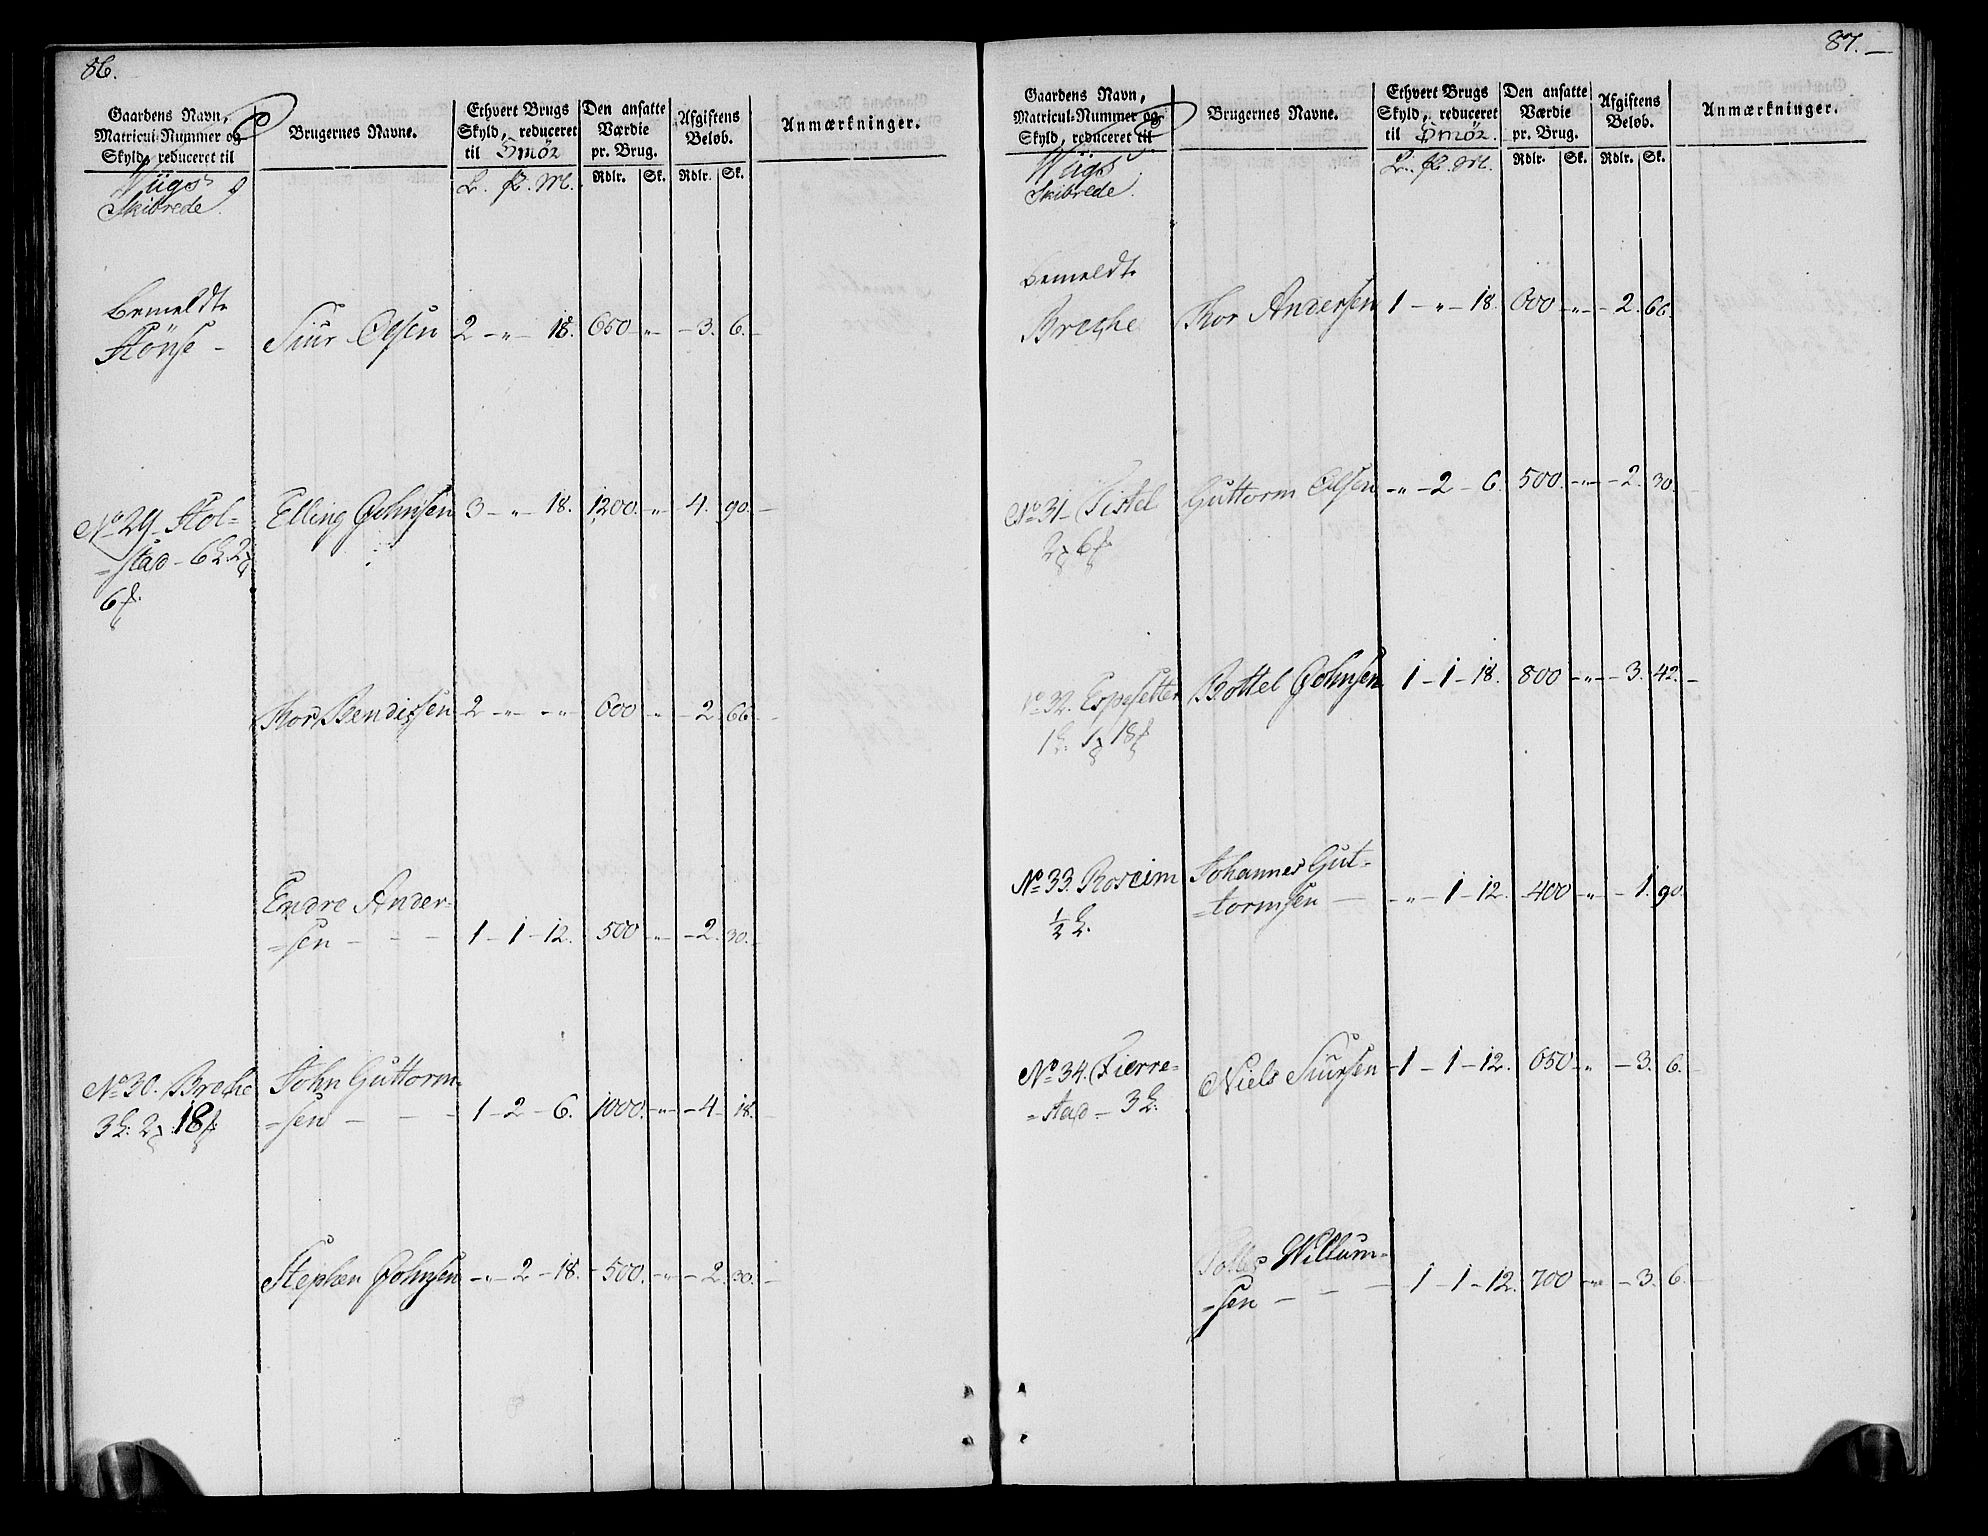 86.
Gaardens Navn, Matricul-Nummer og Skyld, reduceret til
Brugernes Navne.
Ethvert Brugs Skyld, reduceret til Smör
Den ansatte Værdie pr. Brug.
Afgiftens Beløb.
Anmærkninger.
Wiigs Skibrede
L. p. M.
Rdlr. Sk. Rdlr. Sk.
bemeldte
Hönse - Siur Olsen 2 - " - 18. 650 " - 3. 6. -
No 29. Hol= Elling Johnsen 3 - " - 18. 1200. " - 4. 90. -
=stad - 6 L. 2
6
Thor Bendissen 2 - " - " 600 " - 2. 66. -
Endre Ander=
=sen - - - 1 - 1 - 12. 500 " - 2. 30. -
No 30. Breche John Guttorm=
3 L. 2 18 =sen - - - 1 - 2 - 6. 1000. " - 4 - 18. -
Stephen Johnsen - " - 2 - 18. 500. " - 2. 30. -
87.
Gaardens Navn, Matricul-Nummer og Skyld, reduceret til
Brugernes Navne.
Ethvert Brugs Skyld, reduceret til Smör.
Den ansatte Værdie pr. Brug.
Afgiftens Beløb.
Anmærkninger.
Wiigs Skibrede.
L. p. M.
Rdlr. Sk. Rdlr. Sk.
bemeldte
Breche Thor Andersen 1 - " - 18. 600 - " - 2. 66.
No 31. Tistel Guttorm Olsen - " - 2 - 6. 500. - " - 2. 30.
2 6
No 32. Espesetter Bottel Johnsen 1 - 1 - 18. 800 - " - 3. 42. -
1 L. 1 18
No 33. Roseim Johannes Gut=
½ L. =tormsen - - " - 1 - 12. 400 - " - 1. 90.
No 34. Fierre= Niels Siursen - 1 - 1 - 12. 650 - " - 3. 6. -
=stad - 3 L.
Willum=
=sen - - - 1 - 1 - 12. 700 - " - 3. 6. -